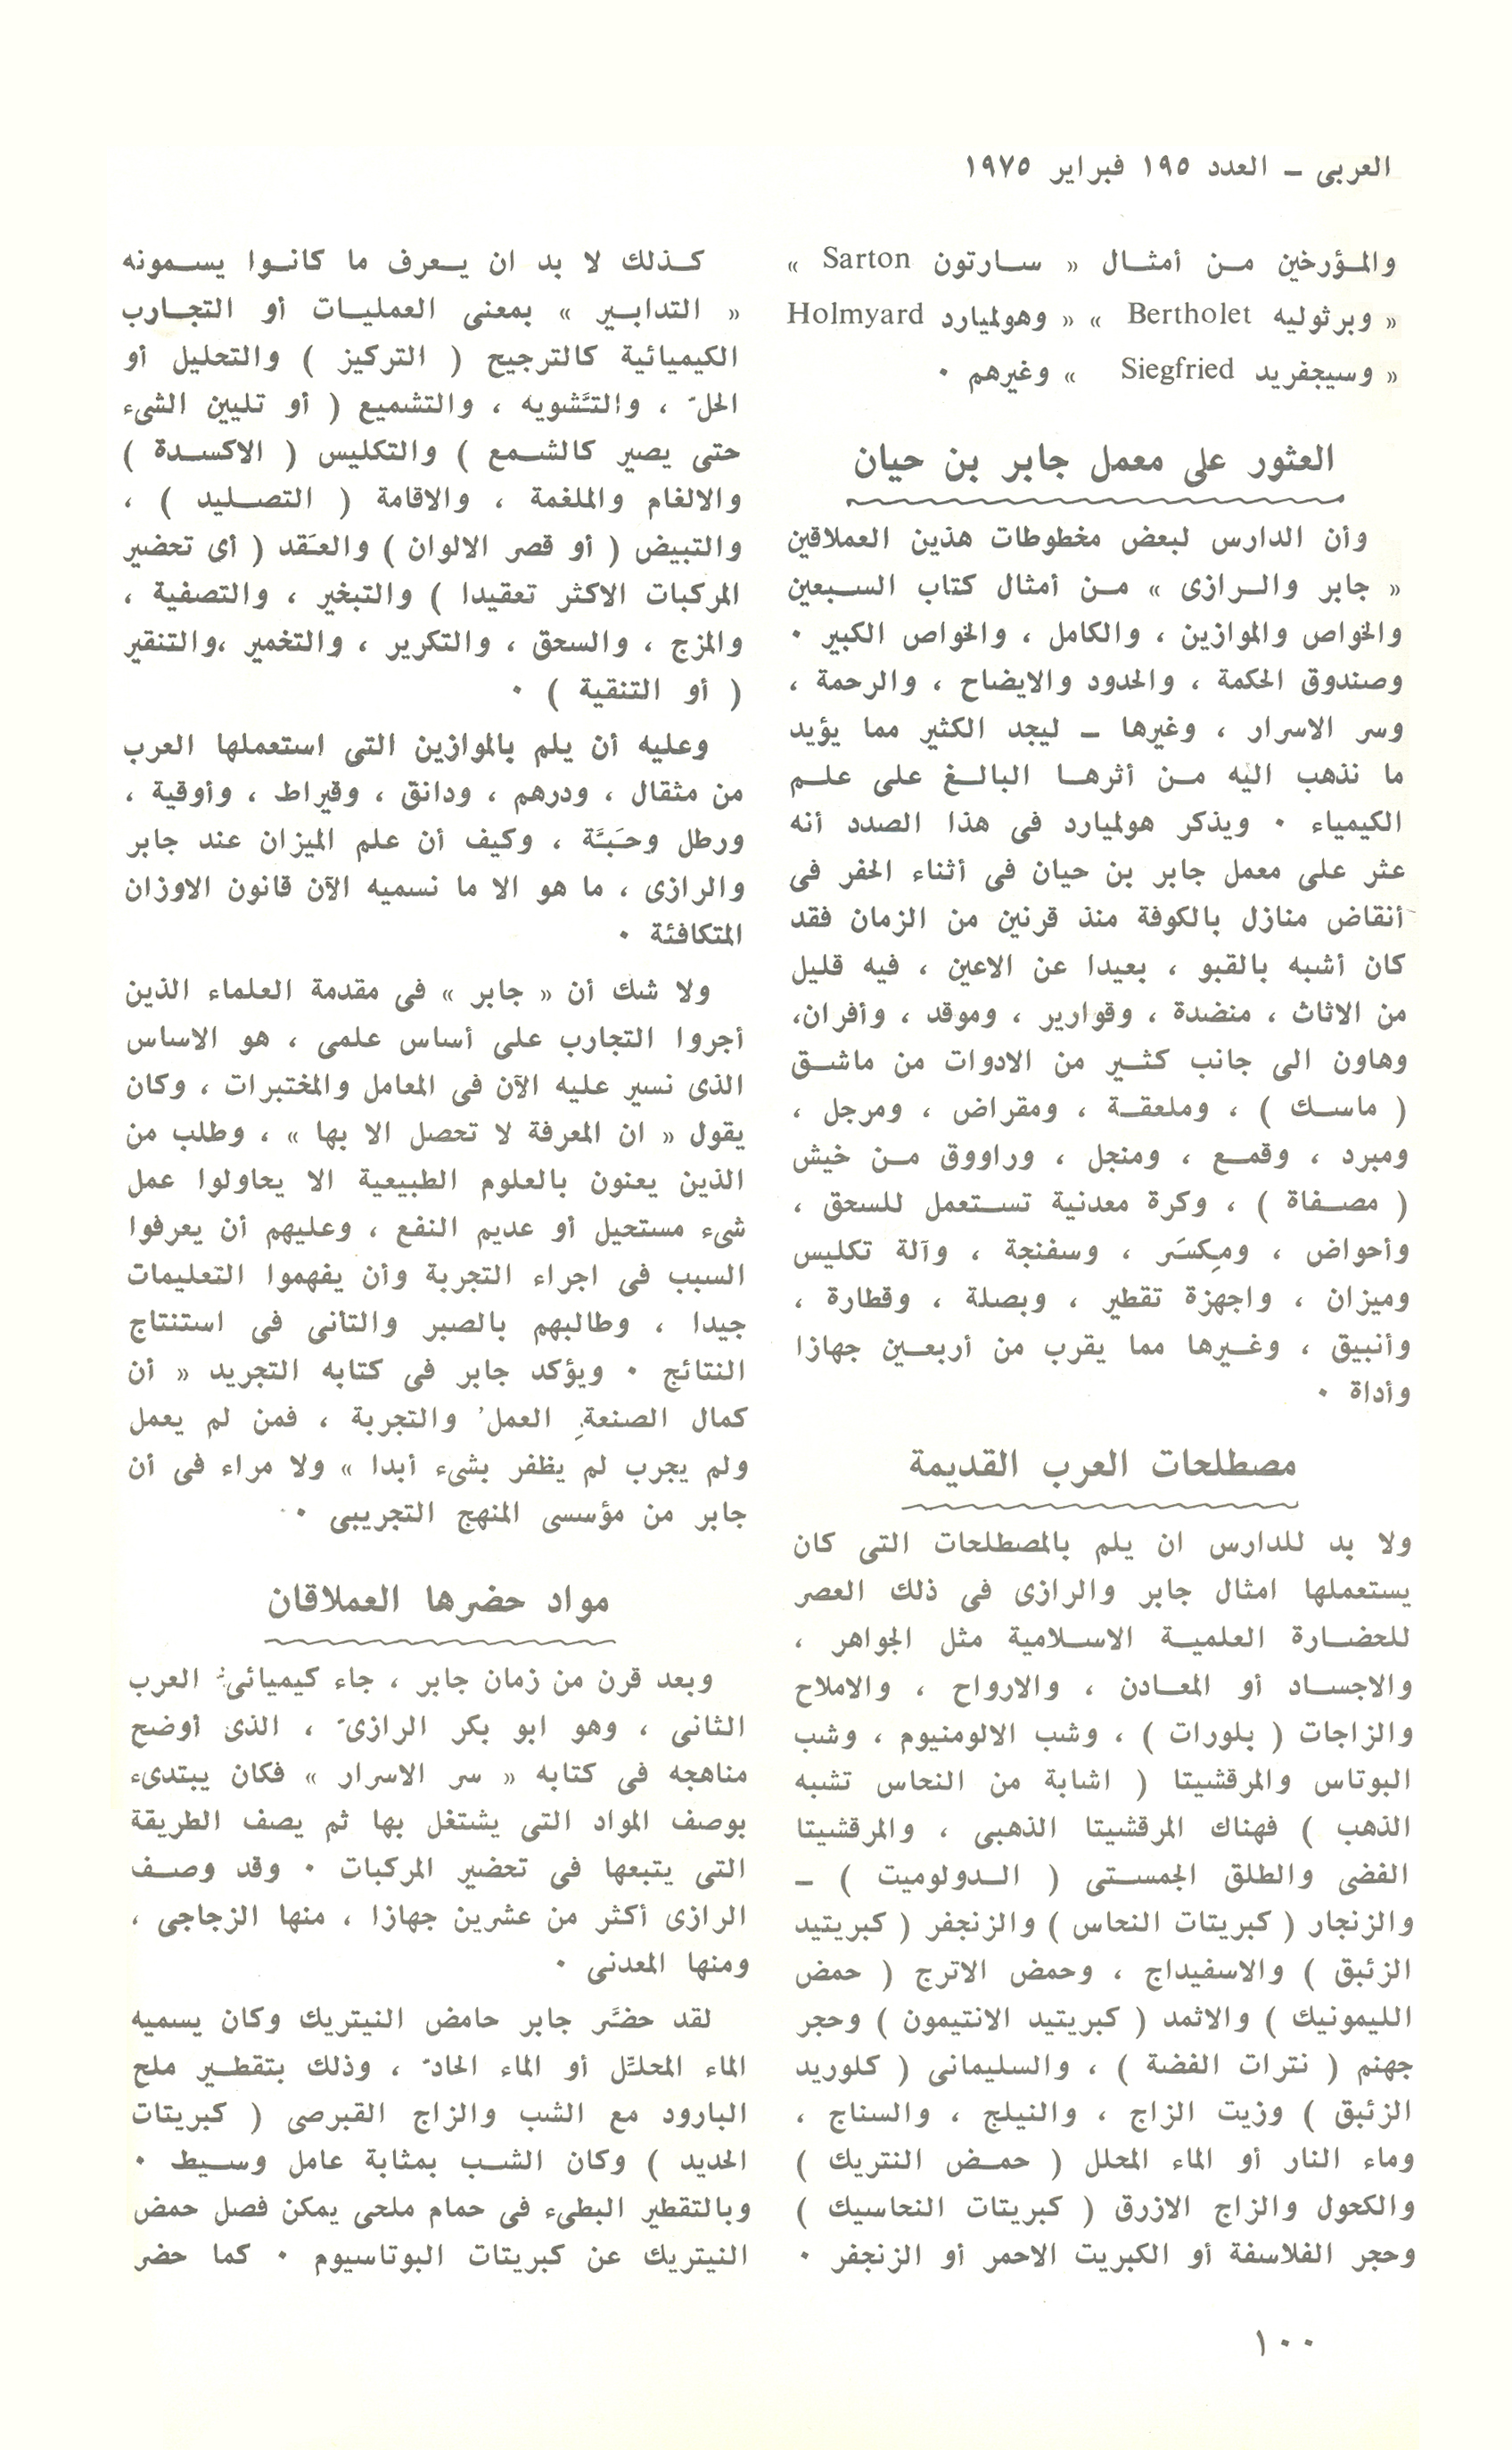 العربى – العدد ١٩٥ فبراير ١٩٧٥
والمؤرخين من أمثال « سارتون Sarton »
« وبرثوليه Bertholet » « وهولميارد Holmyard
« وسيجفريد Siegfried » وغيرهم ٠
العثور على معمل جابر بن حيان
وأن الدارس لبعض مخطوطات هذين العملاقين
« جابر والرازى » من أمثال كتاب السبعين
والخواص والموازين ، والكامل ، والخواص الكبير ٠
وصندوق الحكمة ، والحدود والايضاح ، والرحمة ،
وسر الاسرار ، وغيرها – ليجد الكثير مما يؤيد
ما نذهب اليه من أثرها البالغ على علم
الكيمياء ٠ ويذكر هولميارد فى هذا الصدد أنه
عثر على معمل جابر بن حيان فى أثناء الحفر فى
أنقاض منازل بالكوفة منذ قرنين من الزمان فقد
كان أشبه بالقبو ، بعيدا عن الاعين ، فيه قليل
من الاثاث ، منضدة ، وقوارير ، وموقد ، وأفران،
وهاون الى جانب كثير من الادوات من ماشق
( ماسك ) ، وملعقة ، ومقراض ، ومرجل ،
ومبرد ، وقمع ، ومنجل ، وراووق من خيش
( مصفاة ) ، وكرة معدنية تستعمل للسحق ،
وأحواض ، ومِكسَر ، وسفنجة ، وآلة تكليس
وميزان ، واجهزة تقطير ، وبصلة ، وقطارة ،
وأنبيق ، وغيرها مما يقرب من أربعين جهازا
وأداة ٠
مصطلحات العرب القديمة
ولا بد للدارس ان يلم بالمصطلحات التى كان
يستعملها امثال جابر والرازى فى ذلك العصر
للحضارة العلمية الاسلامية مثل الجواهر ،
والاجساد أو المعادن ، والارواح ، والاملاح
والزاجات ( بلورات ) ، وشب الالومنيوم ، وشب
البوتاس والمرقشيتا ( اشابة من النحاس تشبه
الذهب ) فهناك المرقشيتا الذهبى ، والمرقشيتا
الفضى والطلق الجمستى ( الدولوميت ) –
والزنجار ( كبريتات النحاس ) والزنجفر ( كبريتيد
الزئبق ) والاسفيداج ، وحمض الاترج ( حمض
الليمونيك ) والاثمد ( كبريتيد الانتيمون ) وحجر
جهنم ( نترات الفضة ) ، والسليمانى ( كلوريد
الزئبق ) وزيت الزاج ، والنيلج ، والسناج ،
وماء النار أو الماء المحلل ( حمض النتريك )
والكحول والزاج الازرق ( كبريتات النحاسيك )
وحجر الفلاسفة أو الكبريت الاحمر أو الزنجفر ٠
كذلك لا بد ان يعرف ما كانوا يسمونه
« التدابير » بمعنى العمليات أو التجارب
الكيميائية كالترجيح ( التركيز ) والتحليل أو
الحلّ ، والتَّشويه ، والتشميع ( أو تليين الشىء
حتى يصير كالشمع ) والتكليس ( الاكسدة )
والالغام والملغمة ، والاقامة ( التصليد ) ،
والتبيض ( أو قصر الالوان ) والعَقد ( أى تحضير
المركبات الاكثر تعقيدا ) والتبخير ، والتصفية ،
والمزج ، والسحق ، والتكرير ، والتخمير ،والتنقير
( أو التنقية ) ٠
وعليه أن يلم بالموازين التى استعملها العرب
من مثقال ، ودرهم ، ودانق ، وقيراط ، وأوقية ،
ورطل وحَبَّة ، وكيف أن علم الميزان عند جابر
والرازى ، ما هو الا ما نسميه الآن قانون الاوزان
المتكافئة ٠
ولا شك أن « جابر » فى مقدمة العلماء الذين
أجروا التجارب على أساس علمى ، هو الاساس
الذى نسير عليه الآن فى المعامل والمختبرات ، وكان
يقول « ان المعرفة لا تحصل الا بها » ، وطلب من
الذين يعنون بالعلوم الطبيعية الا يحاولوا عمل
شىء مستحيل أو عديم النفع ، وعليهم أن يعرفوا
السبب فى اجراء التجربة وأن يفهموا التعليمات
جيدا ، وطالبهم بالصبر والتأنى فى استنتاج
النتائج ٠ ويؤكد جابر فى كتابه التجريد « أن
كمال الصنعةِ العملُ والتجربة ، فمن لم يعمل
ولم يجرب لم يظفر بشىء أبدا » ولا مراء فى أن
جابر من مؤسسى المنهج التجريبى ٠
مواد حضرها العملاقان
وبعد قرن من زمان جابر ، جاء كيميائىُّ العرب
الثانى ، وهو ابو بكر الرازىّ ، الذى أوضح
مناهجه فى كتابه « سر الاسرار » فكان يبتدىء
بوصف المواد التى يشتغل بها ثم يصف الطريقة
التى يتبعها فى تحضير المركبات ٠ وقد وصف
الرازى أكثر من عشرين جهازا ، منها الزجاجى ،
ومنها المعدنى ٠
لقد حضَّر جابر حامض النيتريك وكان يسميه
الماء المحلِّل أو الماء الحادّ ، وذلك بتقطير ملح
البارود مع الشب والزاج القبرصى ( كبريتات
الحديد ) وكان الشب بمثابة عامل وسيط ٠
وبالتقطير البطىء فى حمام ملحى يمكن فصل حمض
النيتريك عن كبريتات البوتاسيوم ٠ كما حضر
١٠٠